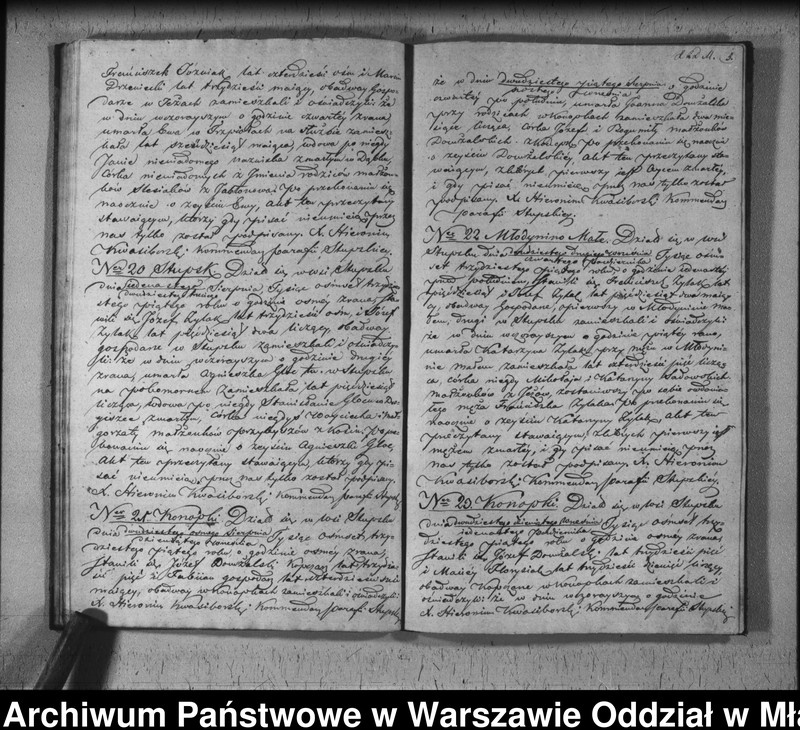 Franciszek Jozwiak lat czterdzieści ośm i Marcin
lat trzydzieści maiący, obadway Gospo-
darze w zamieszkali i oświadczyli: że
w dniu wczorayszym o godzinie czwartéy zrana
umarła Ewa w na służbie zamiesz-
kała lat sześćdziesiąt maiąca, wdowa po niegdy
Janie niewiadomego nazwiska zmarłym w
Córka niewiadomych z Jmienia rodziców małżon-
ków z po przekonaniu się
naocznie o zeyściu Ewy, Akt ten przeczytany
stawaiącym, którzy gdy pisać nieumieią przez
nas tylko został podpisany. X. Hieronim
Kwasiborski Kommendarz parafii Stupskiey
Nro 20 Stupsk. Działo się w wsi Stupsku
dnia Sierpnia, Tysiąc ośmset trzydzie-
stego piątego roku o godzinie osméy zrana, sta-
wili się Józef Zytak lat trzydzieści ośm, i Józef
Zytak lat pięćdziesiąt dwa liczący, obadway
gospodarze w Stupsku zamieszkali i oświadczy-
li: że w dniu wczorayszym o godzinie drugiéy
zrana, umarła Agnieszka Głoc tu w Stupsku
na zamieszkała lat pięćdziesiąt
licząca, wdowa po niegdy Stanisławie Głocu
zmarłym, Córka niegdy Woyciecha i Mał-
gorzaty małżonków z po prze-
konaniu się naocznie o zeyściu Agnieszki Głoc,
Akt ten przeczytany stawaiącym, którzy gdy pi-
sać nieumieią, przez nas tylko został podpisany.
X. Hieronim Kwasiborski Kommendarz parafii Stupsk
Nro 21. Konopki. Działo się w wsi Stupsku
dnia dwudziestego osmego Sierpnia Tysiąc ośmset trzy-
dziestego piątego roku, o godzinie osméy zrana,
stawili się Józef Dowżalski lat trzydzie-
ści pięć i Fabian gospodarz lat czterdzieści
maiący, obadway w Konopkach zamieszkali i oświadczyli:
X. Hieronim Kwasiborski Kommendarz parafii Stupskiey
3.
że w dniu dwudziestego piątego Sierpnia o godzinie
czwartéy po południu, umarła Joanna Dowżalska
przy rodzicach w Konopkach zamieszkała dwa mie-
siące licząca, córka Józefa i Bogumiły małżonków
Dowżalskich. po przekonaniu się naocznie
o zeyściu Dowżalskiéy, Akt ten przeczytany sta-
waiącym, z których pierwszy iest Oycem zmarłéy,
i gdy pisać nieumieią przez nas tylko został
podpisany. X. Hieronim Kwasiborski Kommendarz
parafii Stupskiey.
Nro 22 Młodynino Małe. Działo się w wsi
Stupsku dnia dwudziestego drugiego Września Tysiąc ośm-
set trzydziestego piątego roku o godzinie
przed południem, stawili się Franciszek Zytak lat
pięćdziesiąt i Józef Zytak lat pięćdziesiąt dwa maią-
cy, obadway Gospodarze, pierwszy w Młodyninie ma-
łem, drugi w Stupsku zamieszkali i oświadczyli
że w dniu wczorayszym o godzinie piątéy rano,
umarła Katarzyna Zytak przy mężu w Młodyni-
nie małem zamieszkała lat czterdzieści pięć licząc-
a, córka niegdy Mikołaja i Katarzyny Sadowskich
małżonków z zostawiwszy po sobie owdowia-
łego męża Franciszka Zytaka po przekonaniu się
naocznie o zeyściu Katarzyny Zytak Akt ten
przeczytany stawaiącym, z których pierwszy iest
mężem zmarłéy, i gdy pisać nieumieią przez
nas tylko został podpisany. X. Hieronim
Kwasiborski Kommendarz parafii Stupskiéy.
Nro 23. Konopki. Działo się w wsi Stupsku
dnia dwudziestego dziewiątego Września Tysiąc ośmset trzy-
dziestego piątego roku o godzinie osméy zrana,
stawili się Józef Dowżalski lat trzydzieści pięć
i Maciéy Floryiak lat trzydzieści dziewięć liczący,
obadway w Konopkach zamieszkali i
oświadczyli: że w dniu wczorayszym o godzinie
X. Hieronim Kwasiborski Kommendarz parafii Stupskiéy
Archiwum Państwowe w Warszawie Oddział w Mła